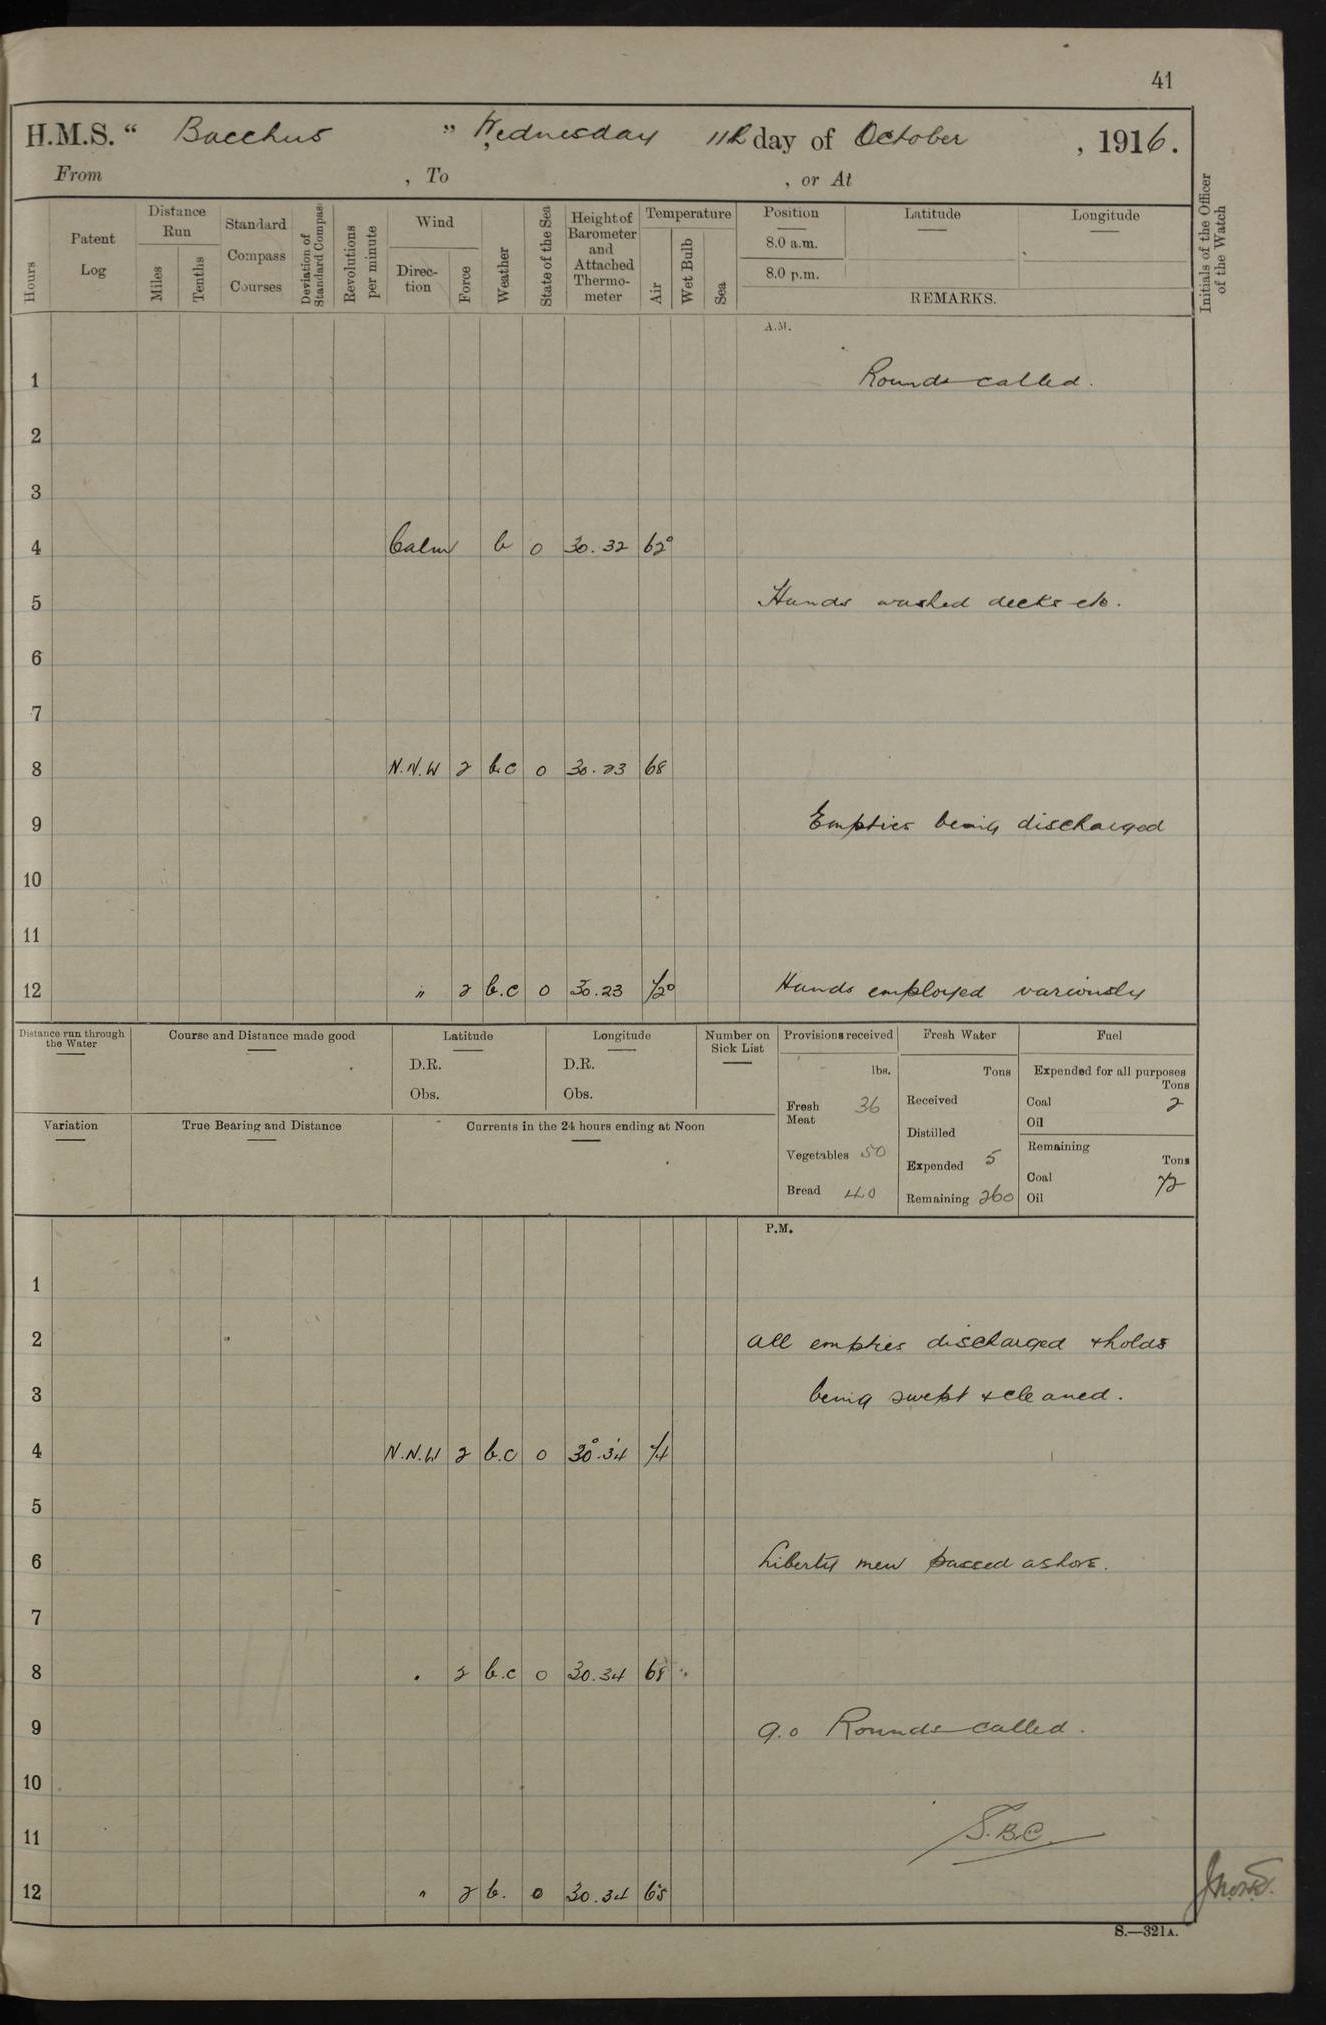 41
H.M.S. “ Bacchus ” Wednesday 11th day of October , 1916.
From , To , or At
Hours
Patent Log
Distance Run
Miles
Tenths
Standard Compass Courses
Deviation of Standard Compass
Revolutions per minute
Wind
Direction
Force
Weather
State of the Sea
Height of Barometer and Attached Thermometer
Temperature
Air
Wet Bulb
Sea
Position
8.0 a.m.
8.0 p.m.
Latitude
Longitude
REMARKS.
Initials of the Officer of the Watch
A.M.
1 Rounds called.
2
3
4 Calm b 0 30.32 62°
5 Hands washed decks etc.
6
7
8 N.N.W 2 b.c 0 30.23 68
9 Empties being discharged
10
11
12 " 2 b.c 0 30.23 72° Hands employed variously
Distance run through the Water
Course and Distance made good
Latitude
D.R.
Obs.
Longitude
D.R.
Obs.
Number on Sick List
Provisions received
lbs.
Fresh Meat 36
Vegetables 50
Bread 40
Fresh Water
Tons
Received
Distilled
Expended 5
Remaining 260
Fuel
Expended for all purposes
Tons
Coal 2
Oil
Remaining
Tons
Coal 72
Oil
Variation
True Bearing and Distance
Currents in the 24 hours ending at Noon
P.M.
1
2 All empties discharged & holds
3 being swept & cleaned.
4 N.N.W 2 b.c 0 30.34 74
5
6 Liberty men passed ashore.
7
8 " 2 b.c 0 30.34 68
9 9.0 Rounds called.
10
11 S.B.C.
12 " 2 b. 0 30.34 65
S.—321A.